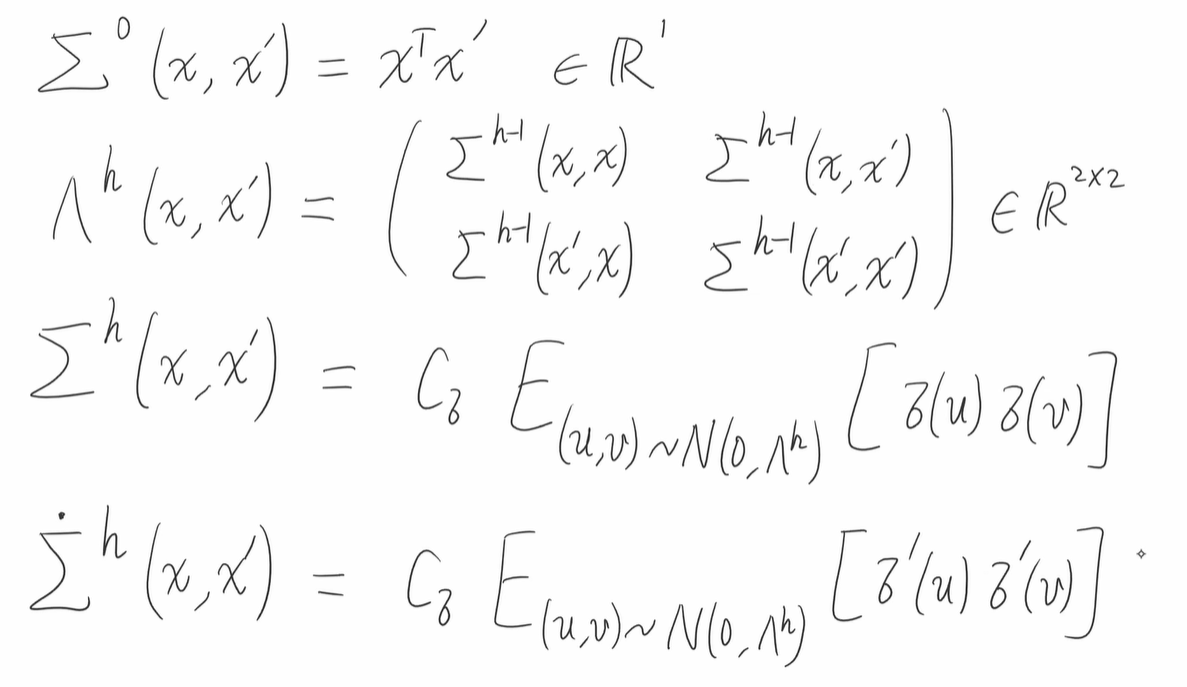 Σ⁰(x, x′) = xᵀx′ ∈ ℝ¹
Λʰ(x, x′) = ( Σʰ⁻¹(x, x) Σʰ⁻¹(x, x′)
Σʰ⁻¹(x′, x) Σʰ⁻¹(x′, x′) ) ∈ ℝ²ˣ²
Σʰ(x, x′) = C_σ E_(u,v)~N(0, Λʰ) [σ(u) σ(v)]
Σ̇ʰ(x, x′) = C_σ E_(u,v)~N(0, Λʰ) [σ′(u) σ′(v)]